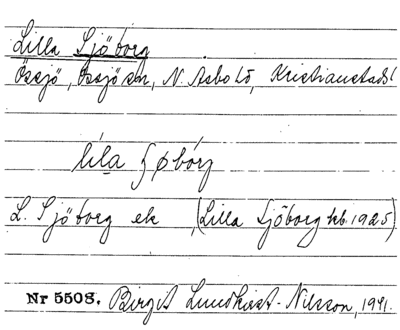 Lilla Sjöborg
Össjö, Össjö sn, N. Åsbo hd, Kristianstads l
lila ʃøbórj
L. Sjöborg ek (Lilla Sjöborg kb 1925)
Nr 5508. Birgit Lundkvist-Nilsson, 1941.